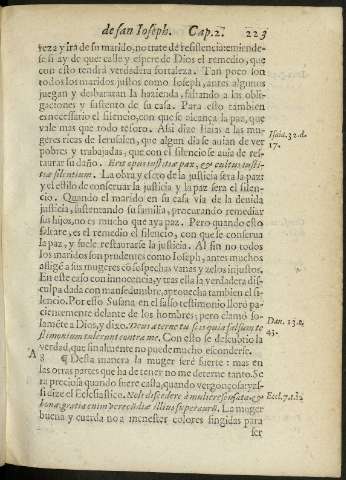 de san Ioseph. Cap. 2. 223
reza y ira de su marido, no trate dé resistencia: emiende-
se si ay de que: calle y espere de Dios el remedio, que
con esto tendrà verdadera fortaleza. Tan poco son
todos los maridos justos como Ioseph, antes algunos
juegan y desbaratan la hazienda, faltando a las obli-
gaciones y sustento de su casa. Para esto tambien
es necessario el silencio, con que se alcança la paz, que
vale mas que todo tesoro. Assi dize Isaias a las mu-
geres ricas de Ierusalen, que algun dia se auian de ver
pobres y trabajadas, que con el silencio se auia de res-
taurar su daño. Erit opus iustitiæ pax, & cultus iusti-
tiæ silentium. La obra y efeto de la justicia serà la paz: y
el estilo de conseruar la justicia y la paz sera el silen-
cio. Quando el marido en su casa vìa de la deuida
justicia, sustentando su familia, procurando remediar
sus hijos, no es mucho que aya paz. Pero quando esto
faltare, es el remedio el silencio, con que se conserua
la paz, y suele restaurarse la justicia. Al fin no todos
los maridos son prudentes como Ioseph, antes muchos
afligē a sus mugeres cō sospechas vanas y zelos injustos.
En este caso con innocencia, y tras ella la verdadera dis-
culpa dada con mansedumbre, aprouecha tambien el si-
lencio. Por esto Susana en el falso testimonio lloró pa-
cientemente delante de los hombres; pero clamò so-
lamēte a Dios, y dixo. Deus æterne tu scis quia falsum te
stimonium tulerunt contra me. Con esto se descubrio la
verdad, que sin hablar no puede mucho esconderse.
8 ¶ Desta manera la muger serè fuerte: mas en
las otras partes que ha de tener no me deterne tanto. Se
ra preciosa quando fuere casta, quando vergonçosa: y as-
si dize el Eclesiastico. Noli discedere à muliere sensata, &
bona: gratia enim verecūdiæ illius super aurū. La muger
buena y cuerda no a menester colores fingidas para
ser
Isaiæ. 32. d.
17.
Dan. 13. e.
43.
Eccl. 7. c.
A